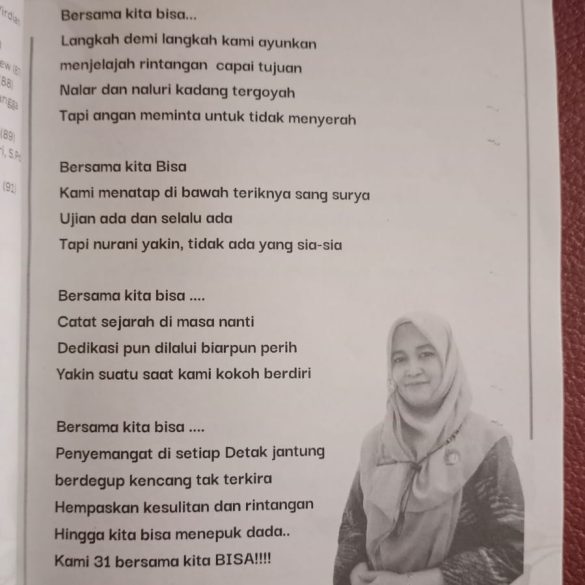 Bersama kita bisa...
Langkah demi langkah kami ayunkan
menjelajah rintangan capai tujuan
Nalar dan naluri kadang tergoyah
Tapi angan meminta untuk tidak menyerah
Bersama kita Bisa
Kami menatap di bawah teriknya sang surya
Ujian ada dan selalu ada
Tapi nurani yakin, tidak ada yang sia-sia
Bersama kita bisa ....
Catat sejarah di masa nanti
Dedikasi pun dilalui biarpun perih
Yakin suatu saat kami kokoh berdiri
Bersama kita bisa ....
Penyemangat di setiap Detak jantung
berdegup kencang tak terkira
Hempaskan kesulitan dan rintangan
Hingga kita bisa menepuk dada..
Kami 31 bersama kita BISA!!!!
(88)
(89)
(91)